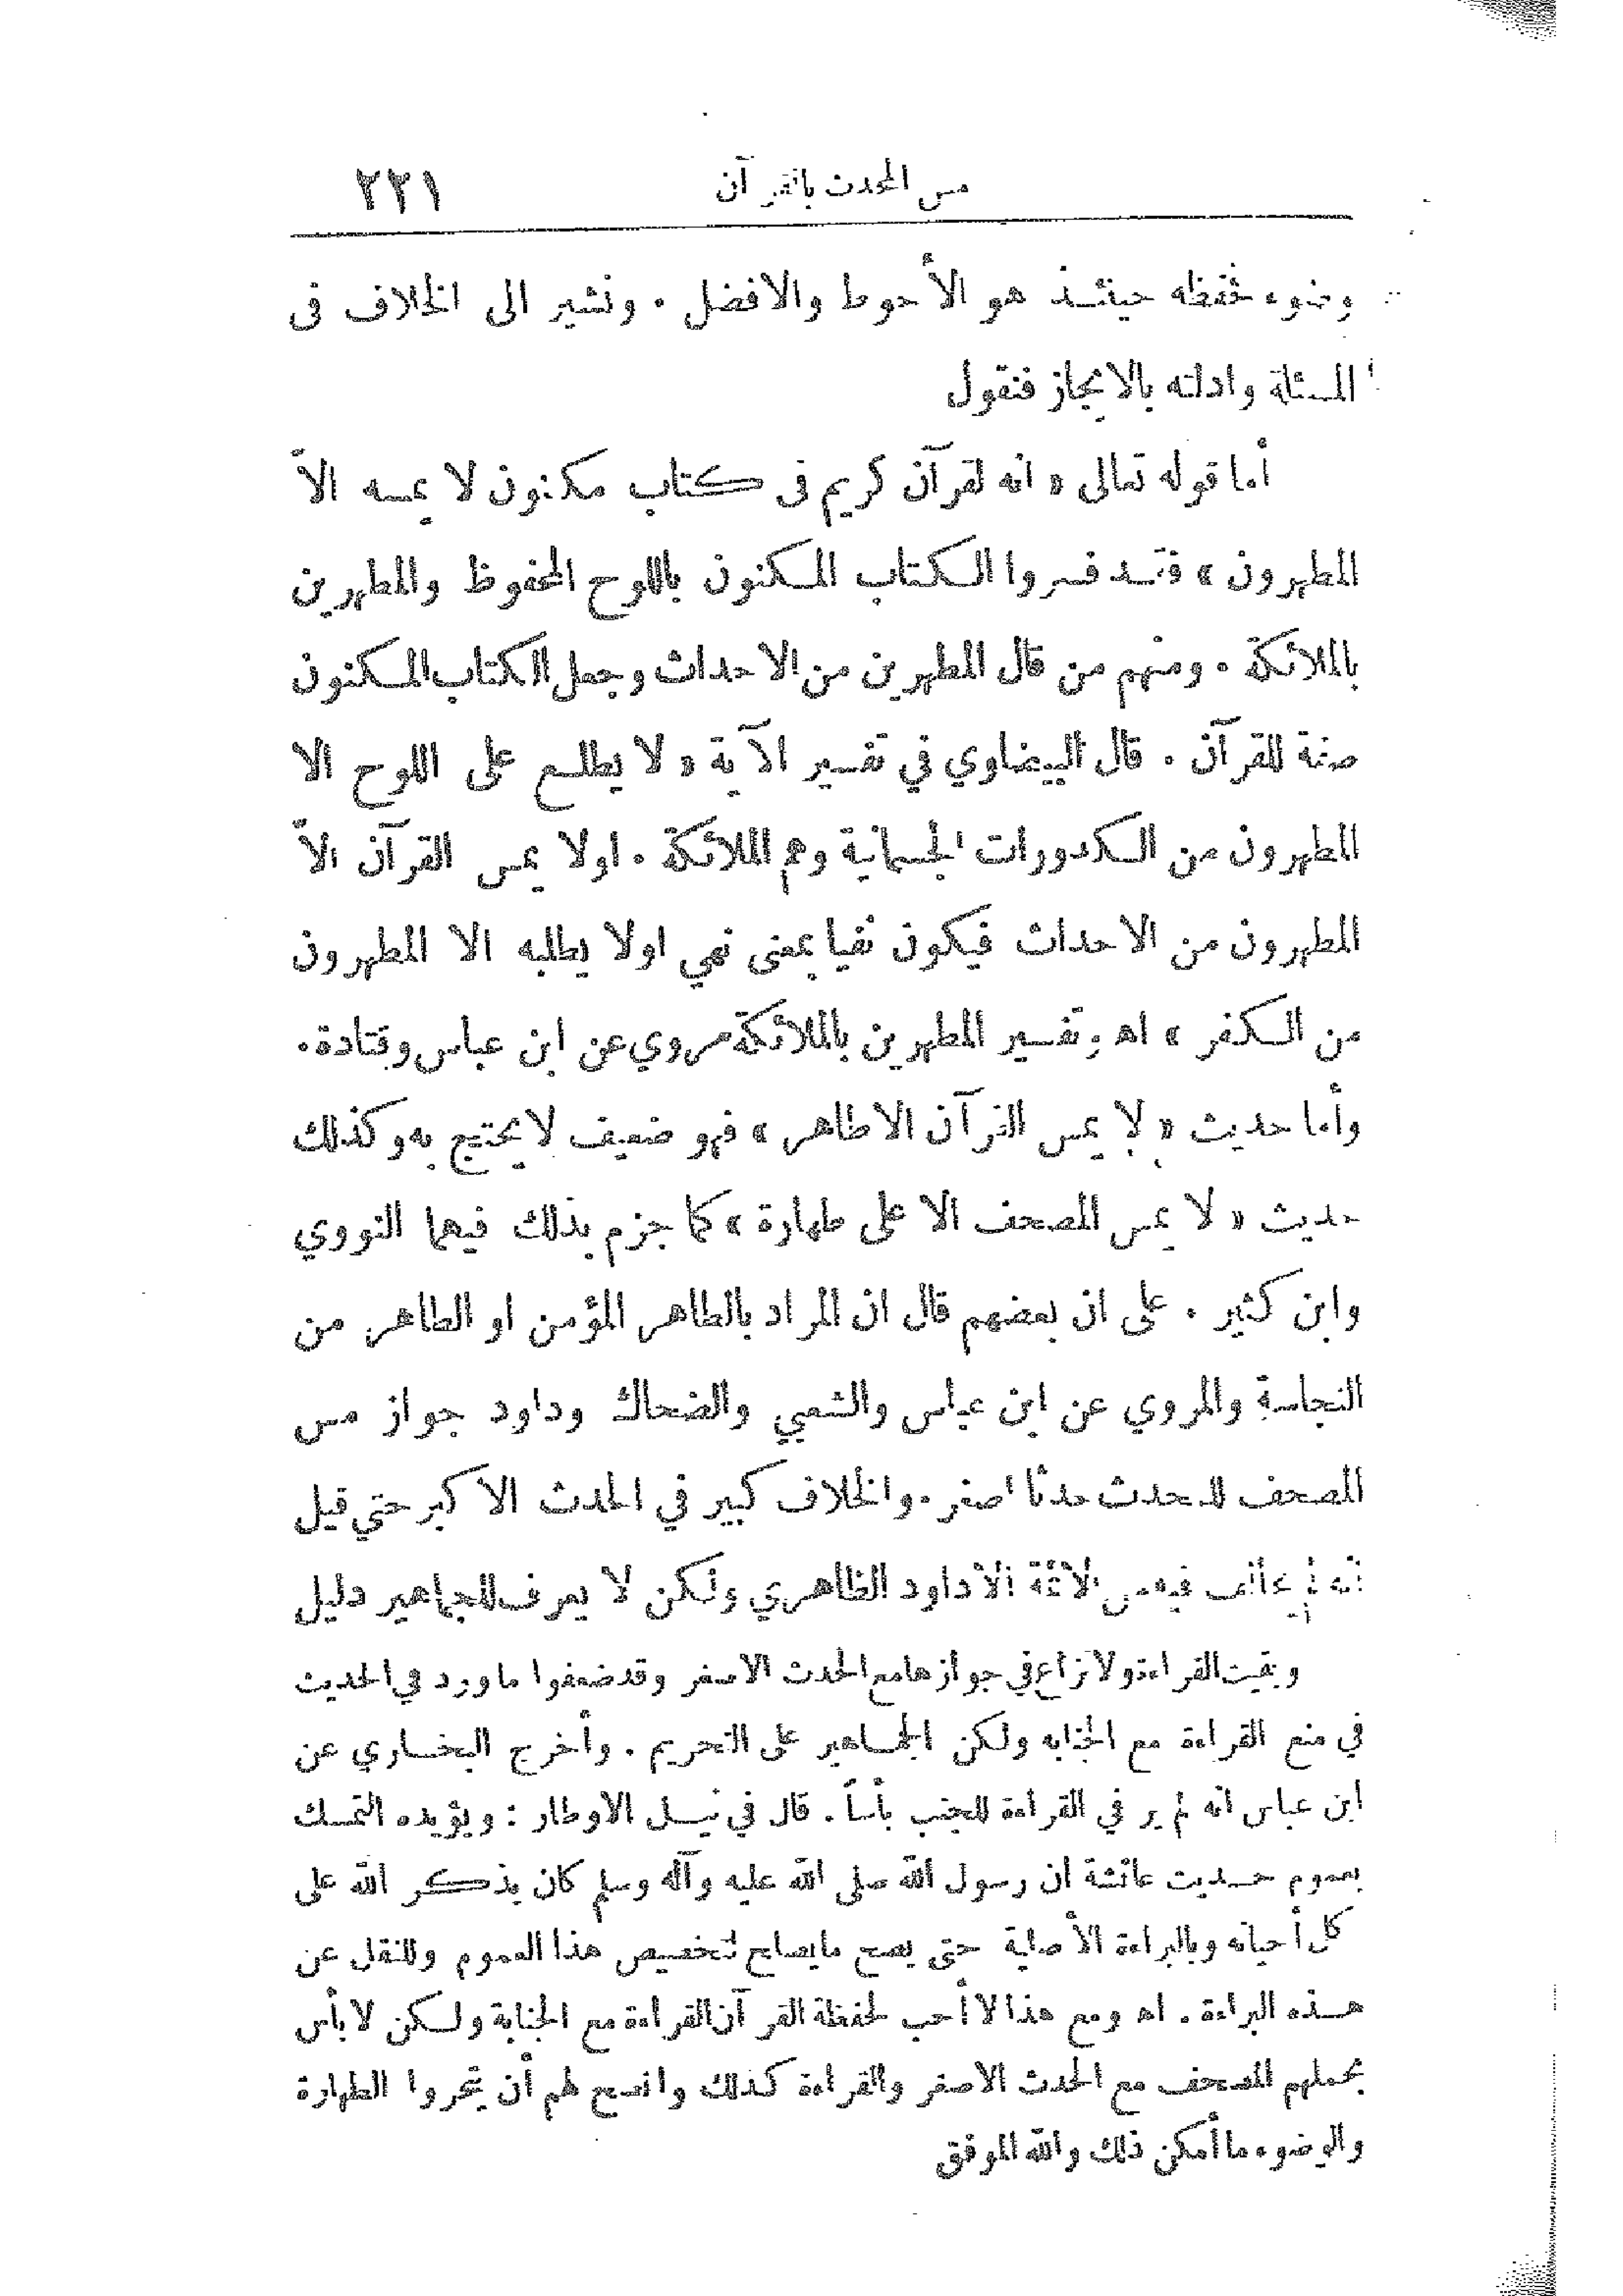 مس المحدث بالقرآن ٢٢١
وضوء فحفظه حينئذ هو الأحوط والافضل . ونشير الى الخلاف فى
المسئلة وادلته بالايجاز فنقول
أما قوله تعالى « انه لقرآن كريم فى كتاب مكنون لا يمسه الاّ
المطهرون » فقد فسروا الكتاب المكنون باللوح المحفوظ والمطهرين
بالملائكة . ومنهم من قال المطهرين من الاحداث وجعل الكتاب المكنون
صفة للقرآن . قال البيضاوي في تفسير الآية « لا يطلع على اللوح الا
المطهرون من الكدورات الجسمانية وهم الملائكة . او لا يمس القرآن الاّ
المطهرون من الاحداث فيكون نفيا بمعنى نهي او لا يطلبه الا المطهرون
من الكفر » اه وتفسير المطهرين بالملائكة مروي عن ابن عباس وقتادة .
وأما حديث « لا يمس القرآن الا طاهر » فهو ضعيف لا يحتج به وكذلك
حديث « لا يمس المصحف الا على طهارة » كما جزم بذلك فيهما النووي
وابن كثير . على ان بعضهم قال ان المراد بالطاهر المؤمن او الطاهر من
النجاسة والمروي عن ابن عباس والشعبي والضحاك وداود جواز مس
المصحف للمحدث حدثا اصغر . والخلاف كبير في الحدث الاكبر حتي قيل
انه لم يخالف فيه من الائمة الا داود الظاهري ولكن لا يعرف للجماهير دليل
وبقيت القراءة ولا نزاع في جوازها مع الحدث الاصغر وقد ضعفوا ما ورد في الحديث
في منع القراءة مع الجنابه ولكن الجماهير على التحريم . وأخرج البخاري عن
ابن عباس انه لم ير في القراءة للجنب بأساً . قال في نيل الاوطار : ويؤيده التمسك
بعموم حديث عائشة ان رسول الله صلى الله عليه وآله وسلم كان يذكر الله على
كل أحيانه وبالبراءة الأصلية حتى يصح ما يصلح لتخصيص هذا العموم وللنقل عن
هذه البراءة . اه ومع هذا لا أحب لحفظة القرآن القراءة مع الجنابة ولكن لا بأس
بحملهم المصحف مع الحدث الاصغر والقراءة كذلك وانصح لهم أن يتحروا الطهارة
والوضوء ما أمكن ذلك والله الموفق